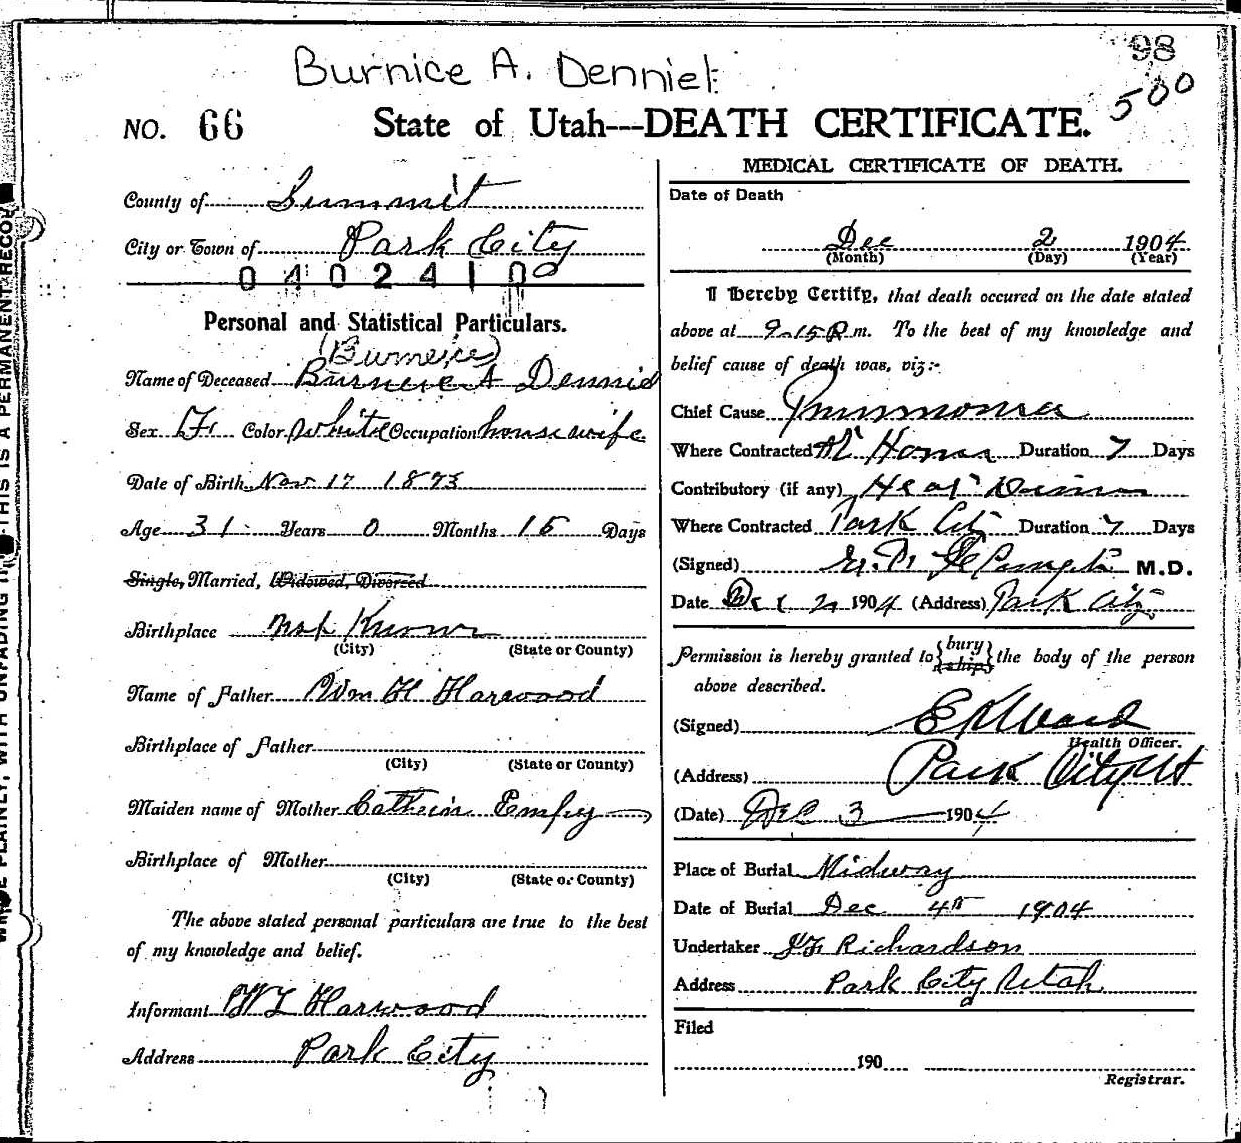 98
Burnice A. Denniel
500
NO. 66 State of Utah---DEATH CERTIFICATE.
County of Summit
City or Town of Park City
0402410
Personal and Statistical Particulars.
(Burneice)
Name of Deceased A Dennid
Sex F. Color White Occupation housewife
Date of Birth Nov 17 1873
Age 31 Years 0 Months 15 Days
Single, Married, Widowed, Divorced
Birthplace Not Known
(City) (State or County)
Name of Father Wm H Harwood
Birthplace of Father
(City) (State or County)
Maiden name of Mother Cathein Empey
Birthplace of Mother
(City) (State or County)
The above stated personal particulars are true to the best
of my knowledge and belief.
Informant Harwood
Address Park City
MEDICAL CERTIFICATE OF DEATH.
Date of Death
Dec 2 1904
(Month) (Day) (Year)
I Hereby Certify, that death occured on the date stated
above at 9-15 P.m. To the best of my knowledge and
belief cause of death was, viz:-
Chief Cause Pneumonia
Where Contracted At Home Duration 7 Days
Contributory (if any)
Where Contracted Park City Duration 7 Days
(Signed) M.D.
Date Dec 2, 1904 (Address) Park City
Permission is hereby granted to {bury
ship} the body of the person
above described.
(Signed) Ward
Health Officer.
(Address) Park City Ut
(Date) Dec 3 1904
Place of Burial Midway
Date of Burial Dec 4th 1904
Undertaker Richardson
Address Park City Utah
Filed
190
Registrar.
THIS IS A PERMANENT RECO
PLAINLY, WITH UNFADING